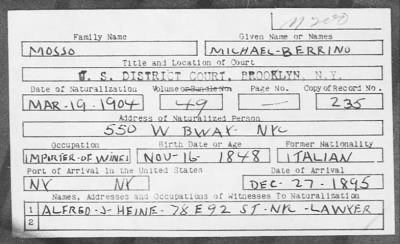 M200
Family Name Given Name or Names
MOSSO MICHAEL-BERRINO
Title and Location of Court
U. S. DISTRICT COURT, BROOKLYN, N.Y.
Date of Naturalization Volume or Bundle No. Page No. Copy of Record No.
MAR-19-1904 49 - 235
Address of Naturalized Person
550 W BWAY- NYC
Occupation Birth Date or Age Former Nationality
IMPORTER-OF WINES NOV-16- 1848 ITALIAN
Port of Arrival in the United States Date of Arrival
NY NY DEC-27-1895
Names, Addresses and Occupations of Witnesses To Naturalization
1 ALFRED-J-HEINE-78 E 92 ST-NYC-LAWYER
2